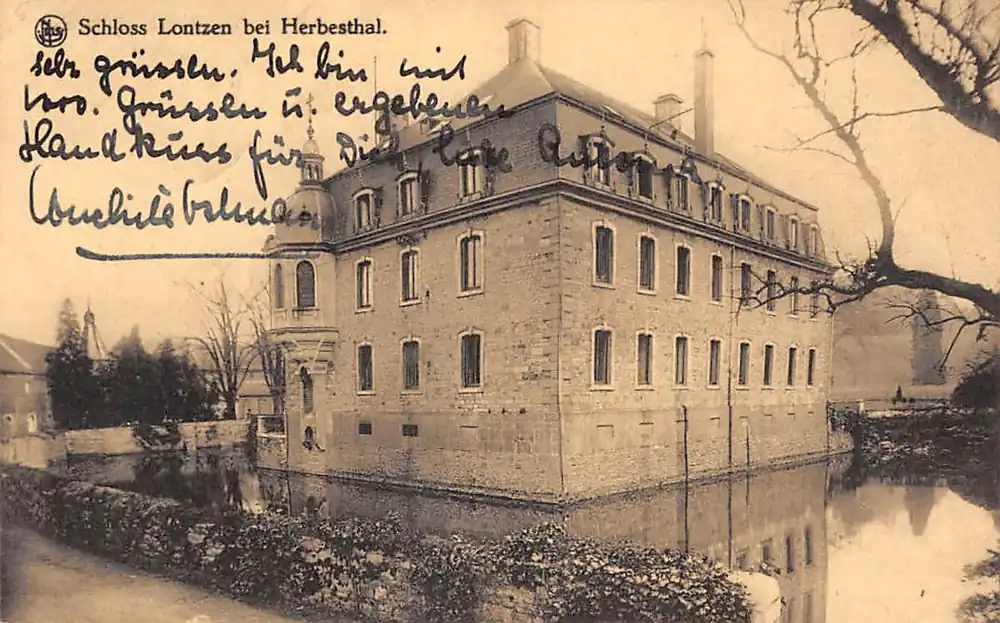 Schloss Lontzen bei Herbesthal.
sehr grüssen. Ich bin mit
1000. Grüssen u. ergebenen
Handkuss für Dich,